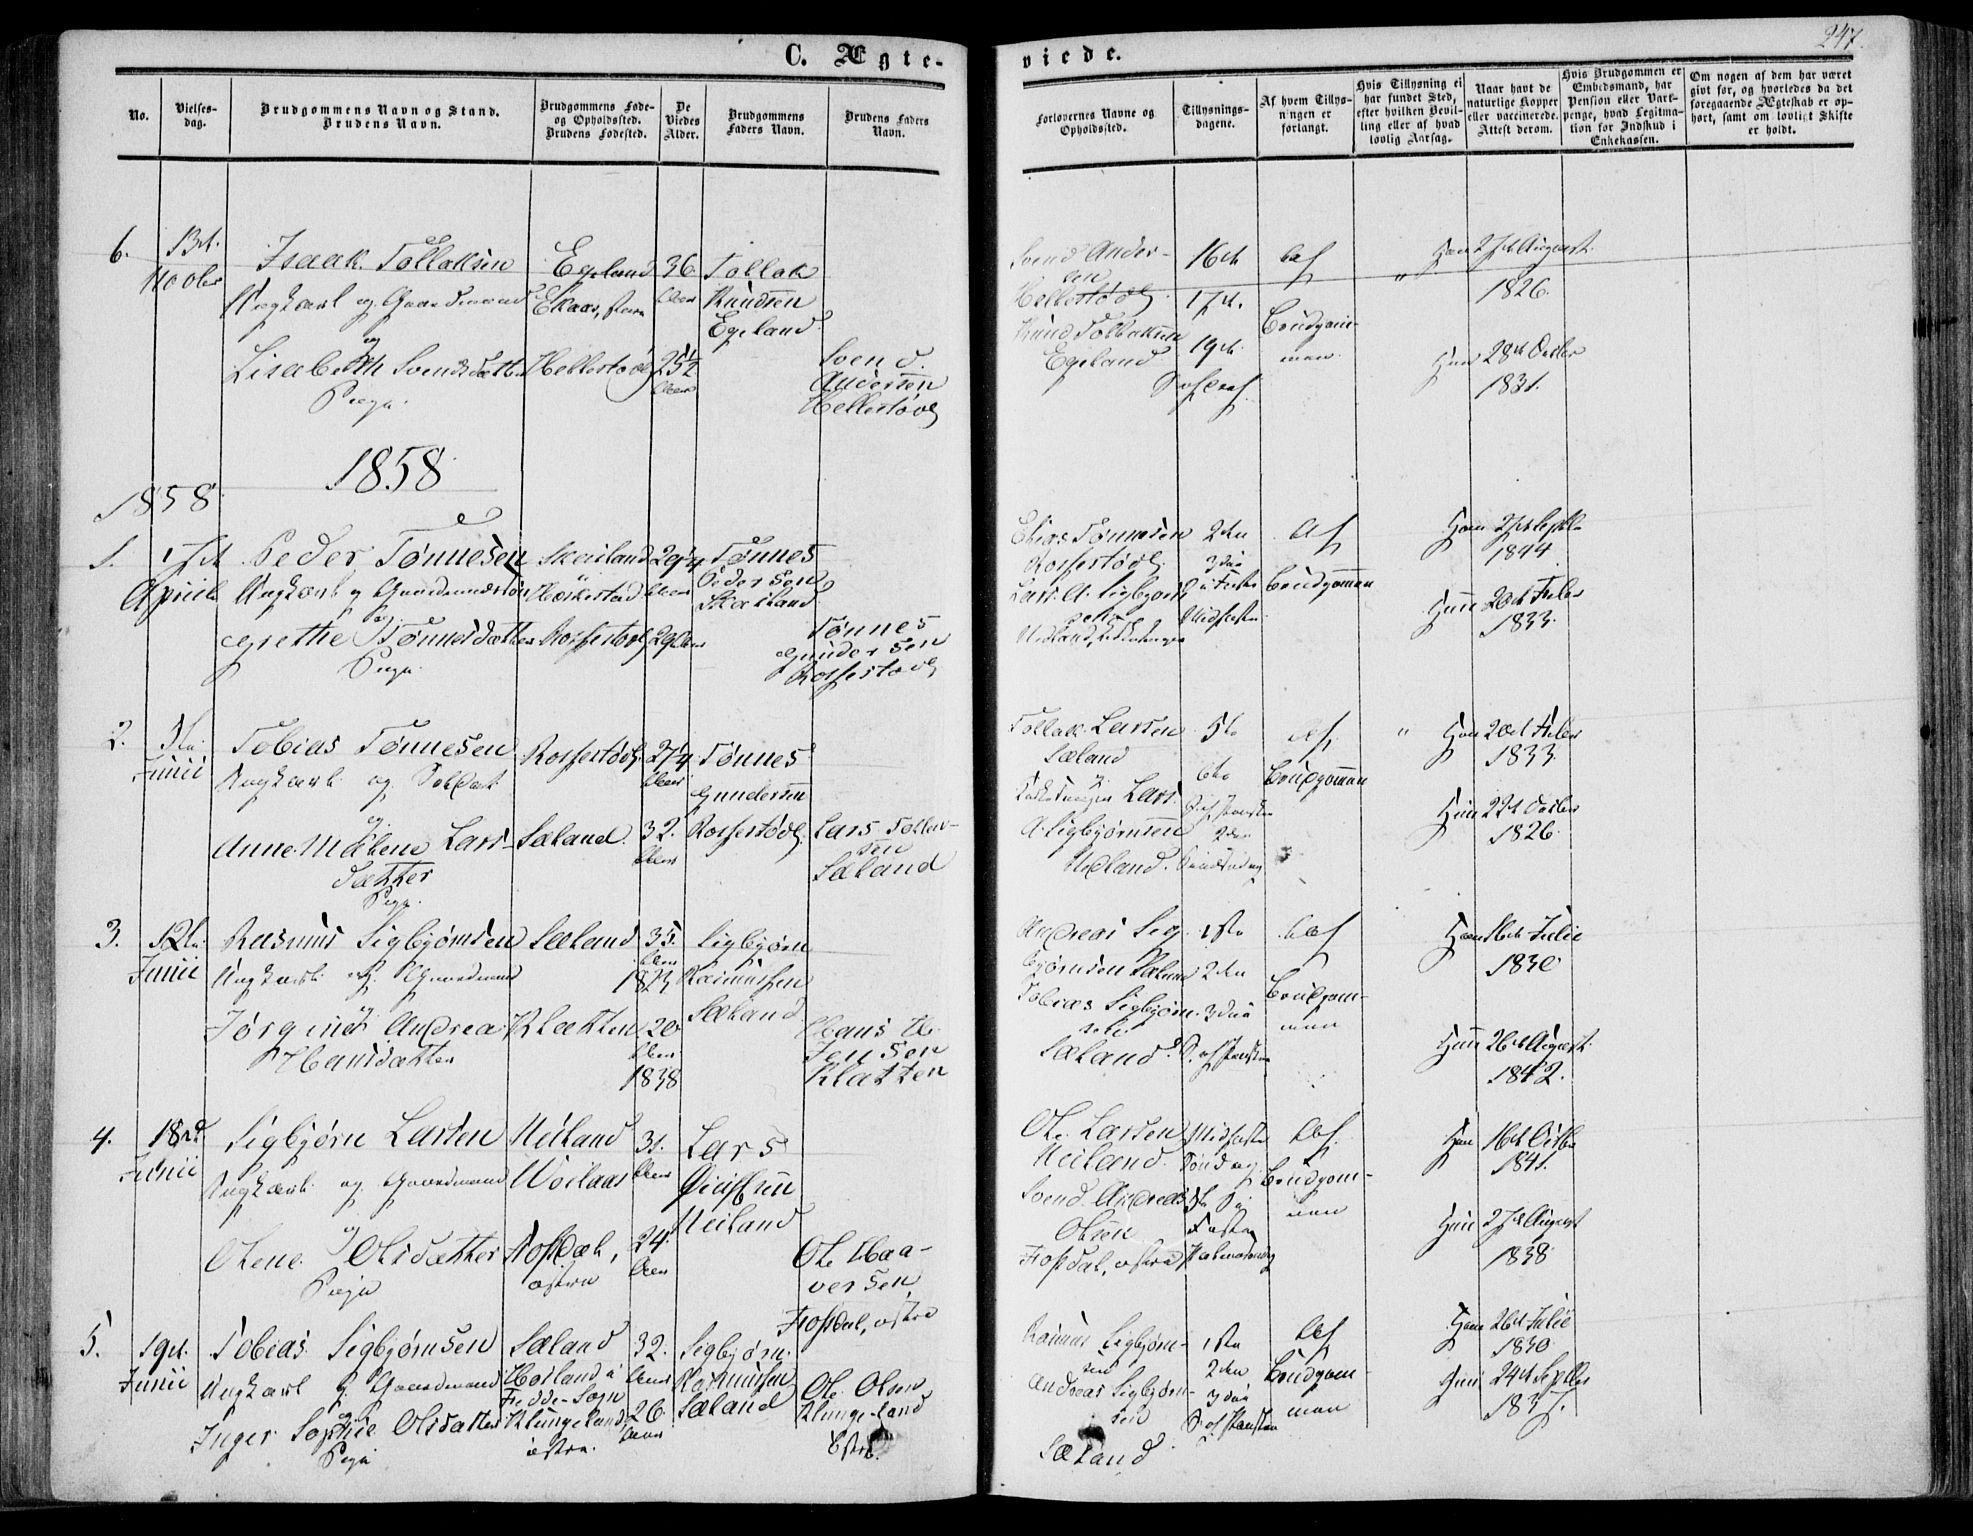 C. Ægte-
viede.
247.
No.
Vielses-
dag.
Brudgommens Navn og Stand.
Brudens Navn.
Brudgommens Føde-
og Opholdssted.
Brudens Fødested.
De
Viedes
Alder.
Brudgommens
Faders Navn.
Brudens Faders
Navn.
Forlovernes Navne og
Opholdssted.
Tillysnings-
dagene.
Af hvem Tillys-
ningen er
forlangt.
Hvis Tillysning ei
har fundet Sted,
efter hvilken Bevil-
ling eller af hvad
lovlig Aarsag.
Naar havt de
naturlige Kopper
eller vaccinerede.
Attest derom.
Hvis Brudgommen er
Embedsmand, har
Pension eller Vart-
penge, hvad Legitima-
tion for Indskud i
Enkekassen.
Om nogen af dem har været
gift før, og hvorledes da det
foregaaende Ægteskab er op-
hørt, samt om lovligt Skifte
er holdt.
6.
Isaak Tollaksen
Ungkarl og Gaardmand
og
Lisabeth Svendsdatter
Pige.
Egeland
Hellestövl
36
25½
Tollak
Knudsen
Egeland
Svend
Andersen
Hellestøvl
Svend Ander-
sen
Hellestøvl
Knud Tollaksen
Egeland
16de
17de
19de
af
Brudgom-
men
27de August
1826.
28de Octber
1831.
1858
1858
1.
17de
April
Peder Tønnesen
Ungkarl og Gaardmandssøn
og
Grethe Tønnesdatter
Pige.
Skeiland
Rossestøvl
29¼
29
Tønnes
Pedersen
Skeiland
Tønnes
Gundersen
Rossestøvl
Elias Tønnesen
Rossestøvl
Lars A. Sigbjørn-
sen
2den
3die
Af
Brudgommen
27de Septbr
1844
1833.
2.
Junii
Tobias Tønnesen
Ungkarl og Soldat
og
Anne Malene Lars-
datter
Pige.
Rossestøvl
Sæland
27¼
32.
Tønnes
Gundersen
Rossestøvl
Lars Tollak-
sen
Sæland
Tollak Larsen
Sæland
Lars
A. Sigbjørnsen
5te
6te
Af
Brudgommen
1833.
22de Octber
1826.
3.
12te
Junii
Rasmus Sigbjørnsen
Ungkarl og Gaardmand
og
Jørgine Andrea
Hansdatter
Sæland
Klætten
35.
1823
20
1838
Sigbjørn
Rasmussen
Sæland
Hans
Jensen
Klætten
Andreas Sig-
bjørnsen Sæland
Tobias Sigbjørn-
sen
Sæland
1ste
2den
3die
af
Brudgom-
men
16de Julie
1830
26de August
1842.
4.
18de
Junii
Sigbjørn Larsen
Ungkarl og Gaardmand
og
Olene Olsdatter
Pige
Neiland
Fossdal,
østre
31.
24.
Lars
Neiland
Ole Haa-
versen
Fossdal, østre
Ole Larsen
Neiland
Svend Andreas
Olsen
Fossdal, østre
Midfaste
Søndag
Faste
Palmesøndag
Af
Brudgom-
men
16de Octbr
1841.
27de August
1838
5.
19de
Junii
Tobias Sigbjørnsen
Ungkarl og Gaardmand
og
Inger Sophie Olsdatter
Pige
Sæland
Hørland i
Fedde-Sogn
Klungeland
østre.
32.
26.
Sigbjørn
Rasmussen
Sæland
Ole Olsen
Klungeland
østre
Rasmus Sigbjørn-
sen
Andreas Sigbjørn-
sen
Sæland
1ste
2den
3die
Af
Brudgom-
men
26de Julie
1830
24de Septbr
1837.